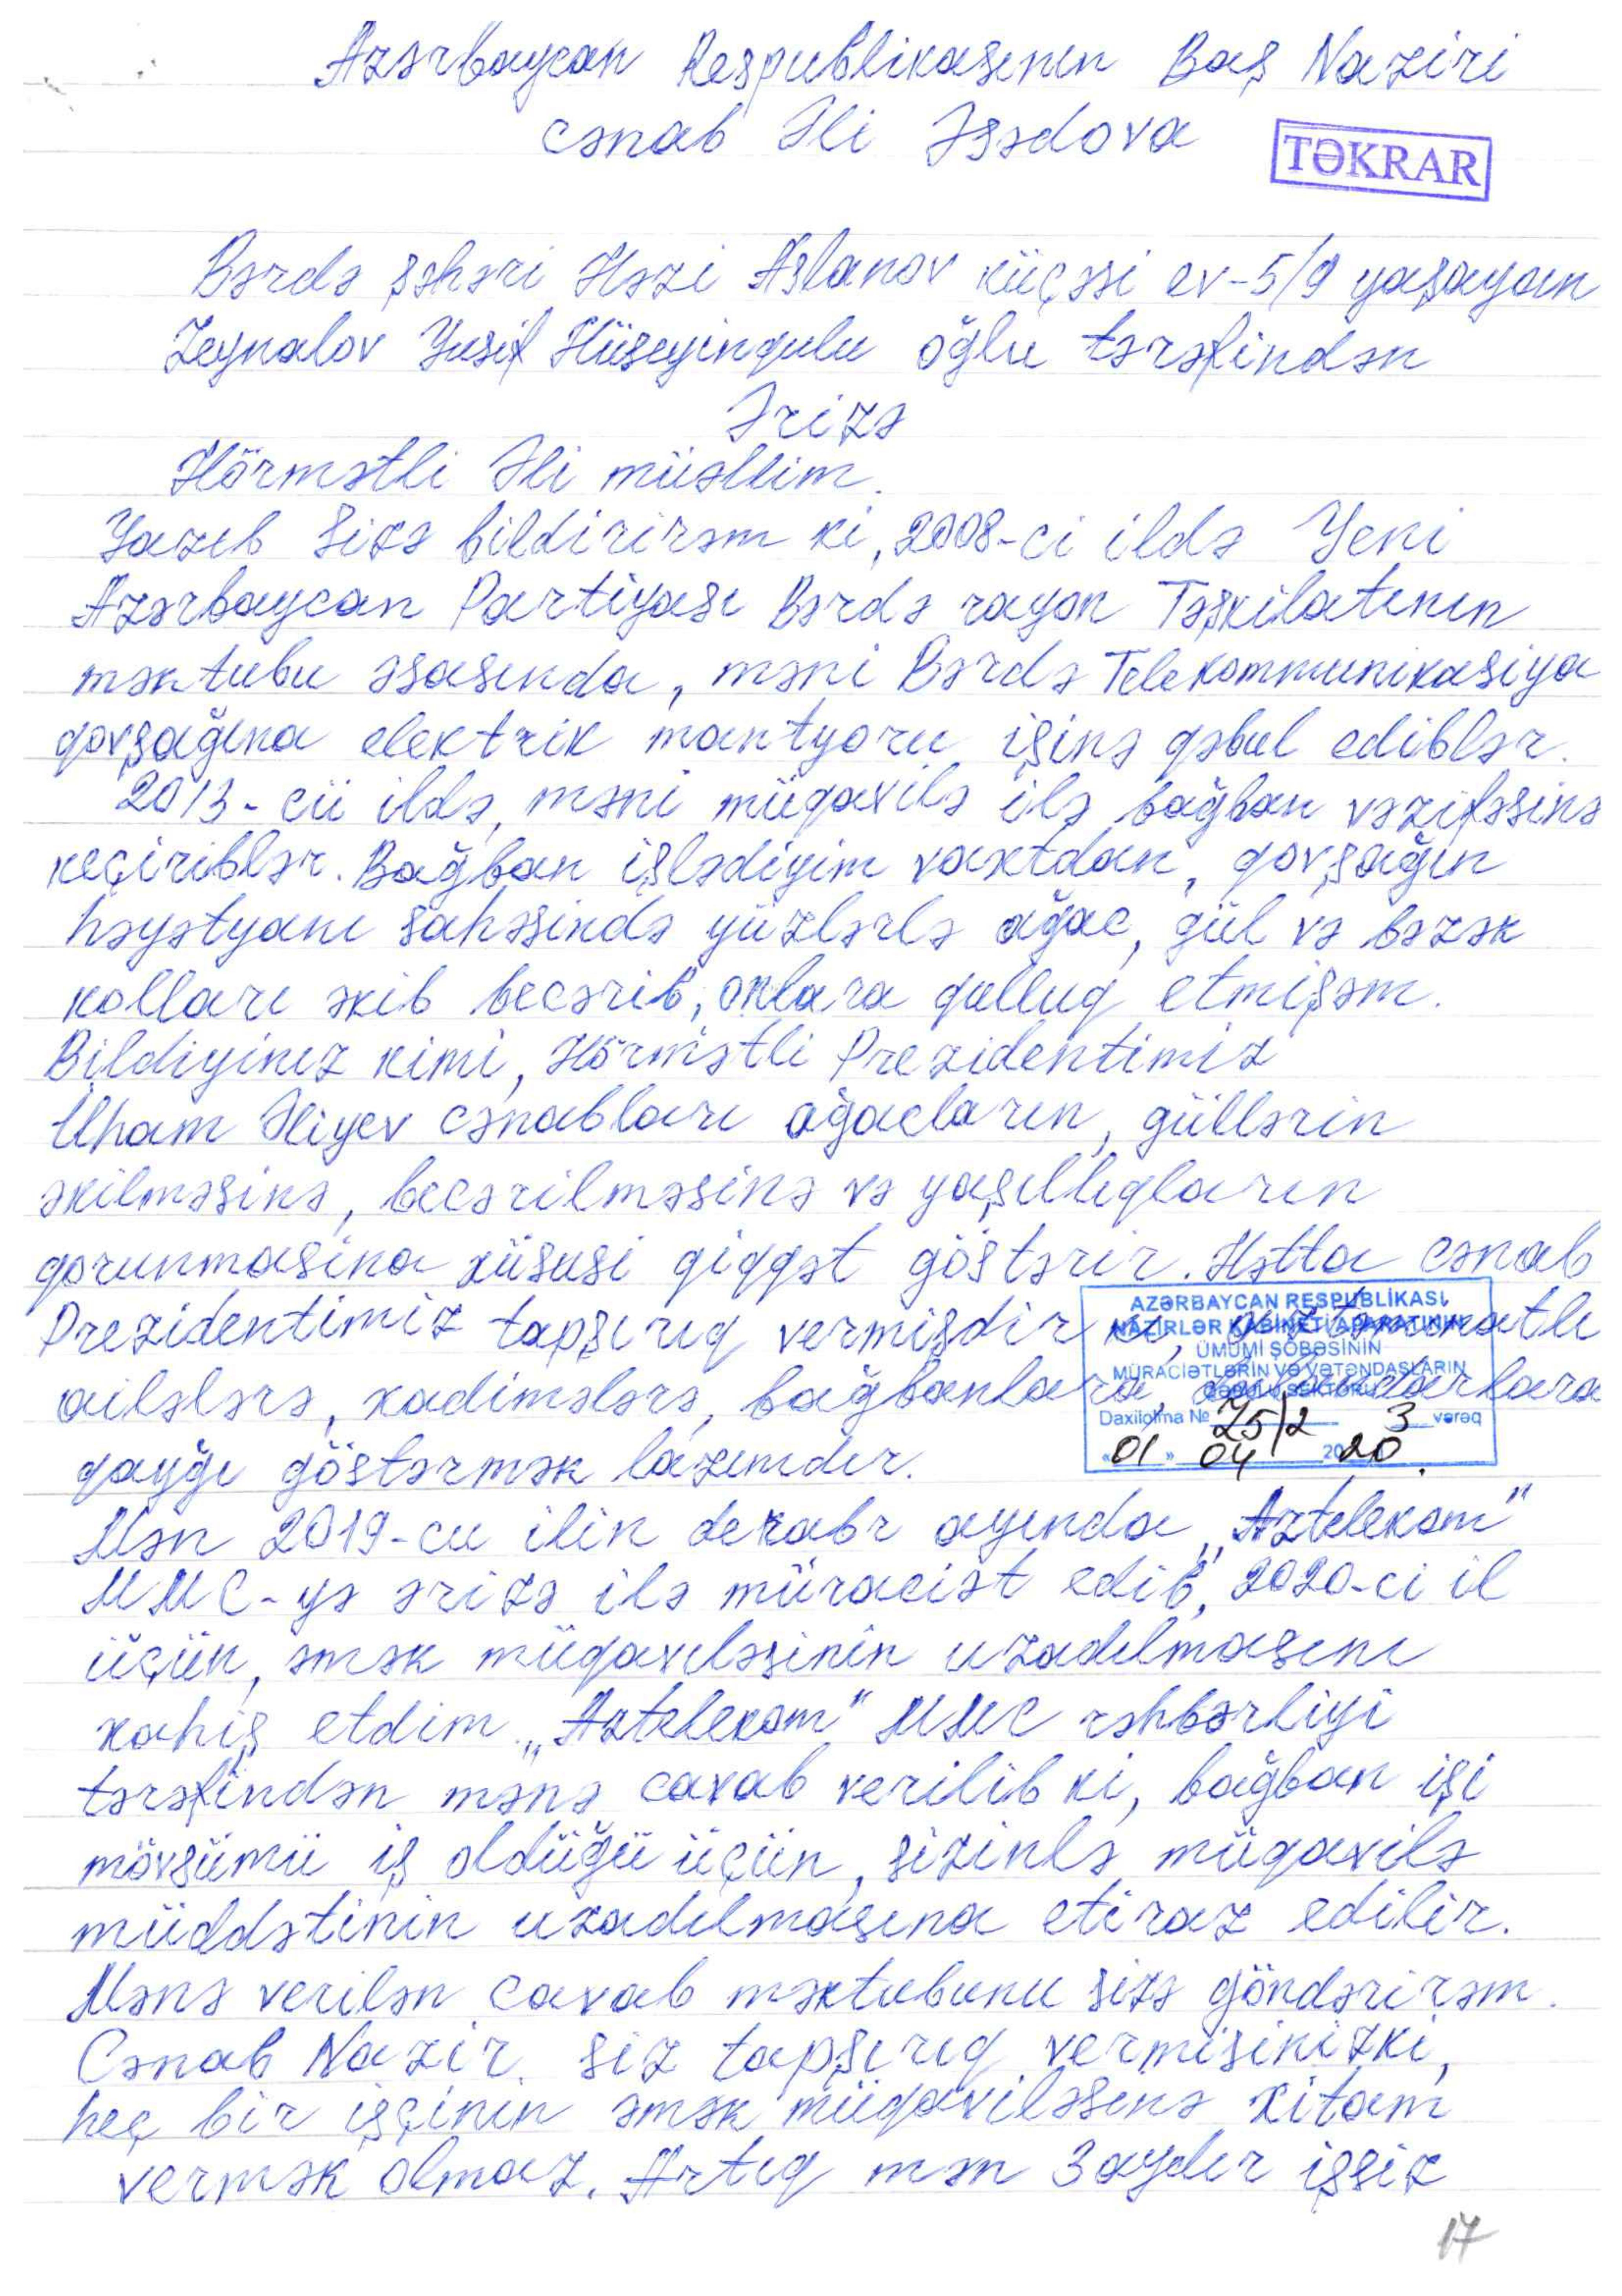 Azərbaycan Respublikasının Baş Naziri
cənab Əli Əsədova
TƏKRAR
Bərdə şəhəri Həzi Aslanov küçəsi ev-5/9 yaşayan
Zeynalov Yusif Hüseyinqulu oğlu tərəfindən
Ərizə
Hörmətli Əli müəllim.
Yazıb Sizə bildirirəm ki, 2008-ci ildə Yeni
Azərbaycan Partiyası Bərdə rayon Təşkilatının
məktubu əsasında, məni Bərdə Telekommunikasiya
qovşağına elektrik mantyoru işinə qəbul ediblər.
2013-cü ildə, məni müqavilə ilə bağban vəzifəsinə
keçiriblər. Bağban işlədiyim vaxtdan, qovşağın
həyətyanı sahəsində yüzlərlə ağac, gül və bəzək
kolları əkib becərib, onlara qulluq etmişəm.
Bildiyiniz kimi, Hörmətli Prezidentimiz
İlham Əliyev cənabları ağacların, güllərin
əkilməsinə, becərilməsinə və yaşıllıqların
qorunmasına xüsusi diqqət göstərir. Hətta cənab
Prezidentimiz tapşırıq vermişdir ki, az təminatlı
ailələrə, xadimələrə, bağbanlara,
qayğı göstərmək lazımdır.
AZƏRBAYCAN RESPUBLİKASI
NAZİRLƏR KABİNETİ APARATININ
ÜMUMİ ŞÖBƏSİNİN
MÜRACİƏTLƏRİN VƏ VƏTƏNDAŞLARIN
QƏBULU SEKTORU
Daxilolma № Z5/2 3 vərəq
«01» 04 2020.
Mən 2019-cu ilin dekabr ayında „Aztelekom"
MMC-yə ərizə ilə müraciət edib, 2020-ci il
üçün, əmək müqaviləsinin uzadılmasını
xahiş etdim. „Aztelekom" MMC rəhbərliyi
tərəfindən mənə cavab verilib ki, bağban işi
mövsümü iş olduğu üçün, sizinlə müqavilə
müddətinin uzadılmasına etiraz edilir.
Mənə verilən cavab məktubunu sizə göndərirəm.
Cənab Nazir. siz tapşırıq vermisinizki,
heç bir işçinin əmək müqaviləsinə xitam
vermək olmaz. Artıq mən 3 aydır işsiz
17